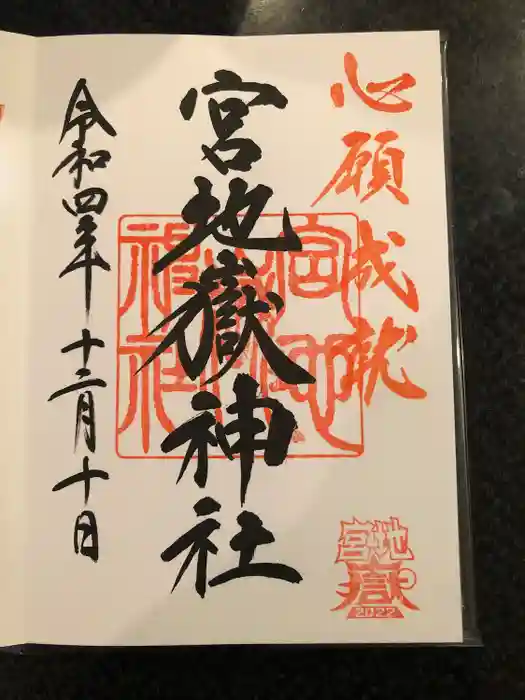 心願成就
宮地嶽神社
令和四年 十二月十日
宮地
嶽
2022